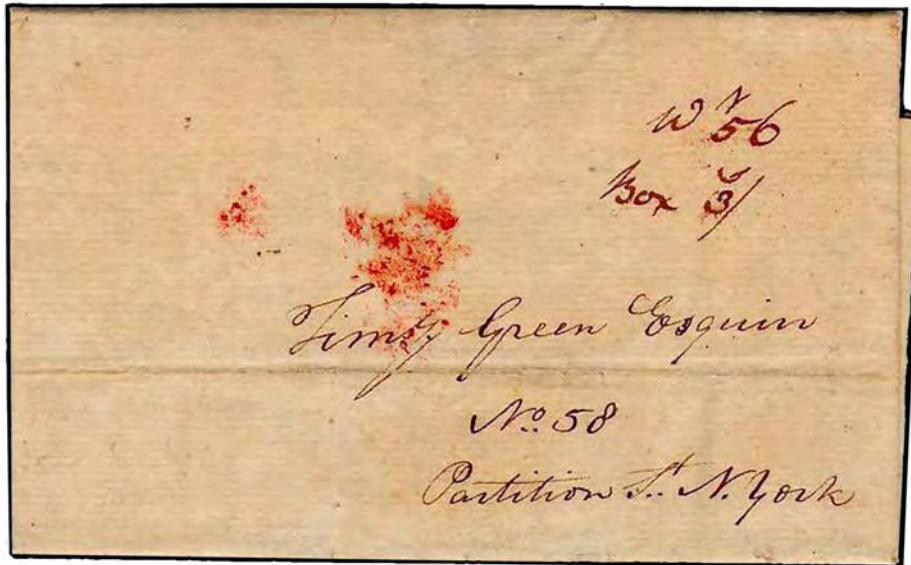 Wr 56
Box 3/
Timy Green Esquire
No. 58
Partition St. N. York